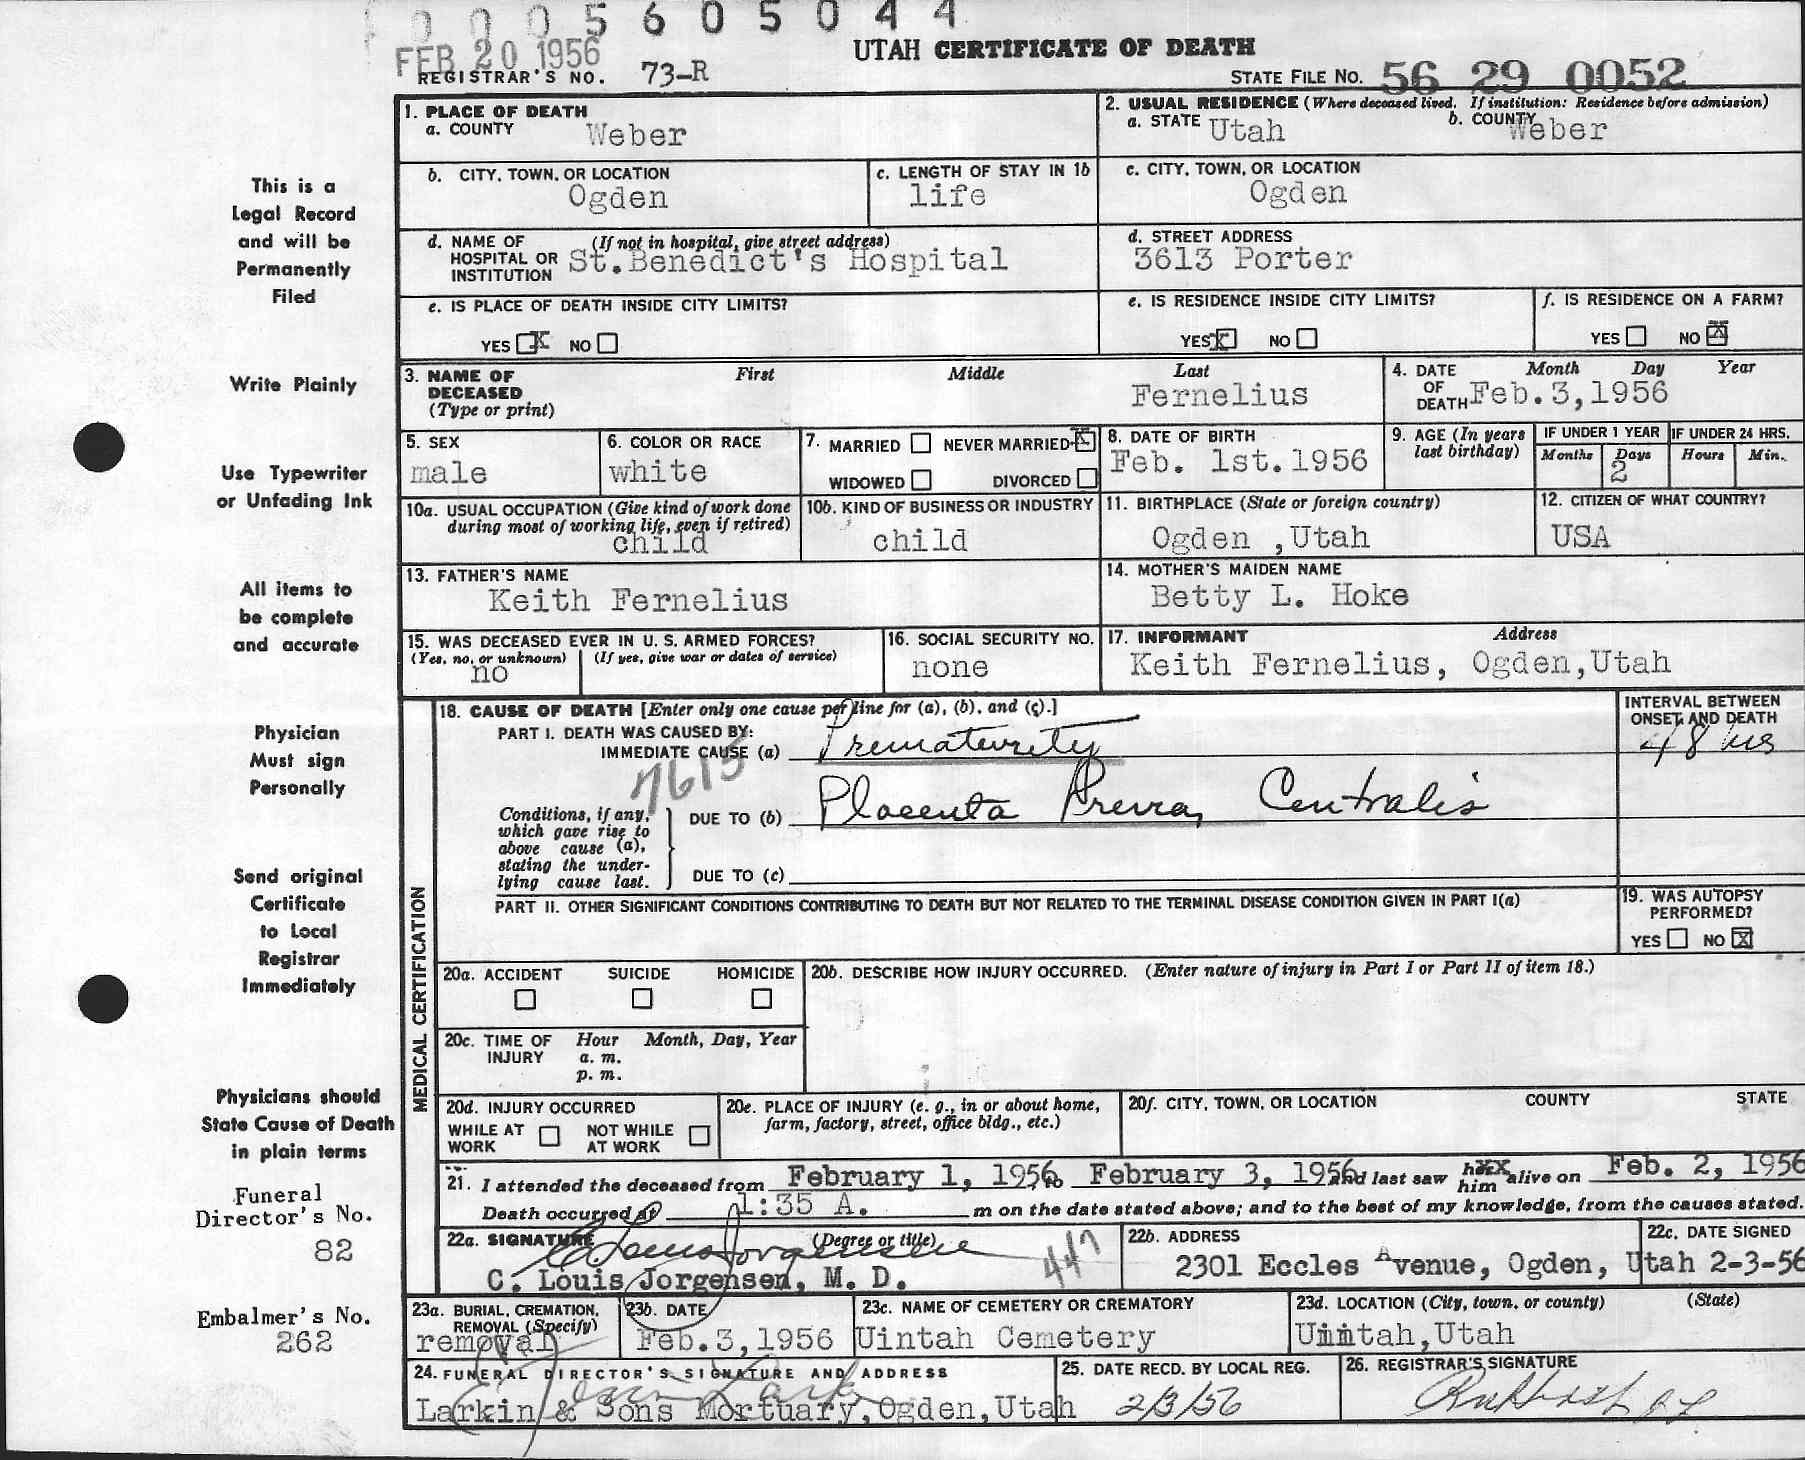 0005605044
FEB 20 1956
UTAH CERTIFICATE OF DEATH
REGISTRAR'S NO. 73-R
STATE FILE NO. 56 29 0052
1. PLACE OF DEATH
a. COUNTY Weber
2. USUAL RESIDENCE (Where deceased lived. If institution: Residence before admission)
a. STATE Utah b. COUNTY Weber
b. CITY, TOWN, OR LOCATION Ogden
c. LENGTH OF STAY IN 1b life
c. CITY, TOWN, OR LOCATION Ogden
d. NAME OF HOSPITAL OR INSTITUTION (If not in hospital, give street address) St.Benedict's Hospital
d. STREET ADDRESS 3613 Porter
e. IS PLACE OF DEATH INSIDE CITY LIMITS?
YES X NO
e. IS RESIDENCE INSIDE CITY LIMITS?
YES X NO
f. IS RESIDENCE ON A FARM?
YES NO X
3. NAME OF DECEASED (Type or print) First Middle Last
Fernelius
4. DATE OF DEATH Month Day Year
Feb.3,1956
5. SEX male
6. COLOR OR RACE white
7. MARRIED NEVER MARRIED X
WIDOWED DIVORCED
8. DATE OF BIRTH Feb. 1st.1956
9. AGE (In years last birthday)
IF UNDER 1 YEAR Months Days 2
IF UNDER 24 HRS. Hours Min.
10a. USUAL OCCUPATION (Give kind of work done during most of working life, even if retired) child
10b. KIND OF BUSINESS OR INDUSTRY child
11. BIRTHPLACE (State or foreign country) Ogden ,Utah
12. CITIZEN OF WHAT COUNTRY? USA
13. FATHER'S NAME Keith Fernelius
14. MOTHER'S MAIDEN NAME Betty L. Hoke
15. WAS DECEASED EVER IN U. S. ARMED FORCES?
(Yes, no, or unknown) (If yes, give war or dates of service)
no
16. SOCIAL SECURITY NO. none
17. INFORMANT Address
Keith Fernelius, Ogden,Utah
MEDICAL CERTIFICATION
18. CAUSE OF DEATH [Enter only one cause per line for (a), (b), and (c).]
INTERVAL BETWEEN ONSET AND DEATH
PART I. DEATH WAS CAUSED BY:
IMMEDIATE CAUSE (a) Prematurity 48 hrs
7615
Conditions, if any, which gave rise to above cause (a), stating the underlying cause last.
DUE TO (b) Placenta Previa, Centralis
DUE TO (c)
PART II. OTHER SIGNIFICANT CONDITIONS CONTRIBUTING TO DEATH BUT NOT RELATED TO THE TERMINAL DISEASE CONDITION GIVEN IN PART I(a)
19. WAS AUTOPSY PERFORMED?
YES NO X
20a. ACCIDENT SUICIDE HOMICIDE
20b. DESCRIBE HOW INJURY OCCURRED. (Enter nature of injury in Part I or Part II of item 18.)
20c. TIME OF INJURY Hour Month, Day, Year
a. m.
p. m.
20d. INJURY OCCURRED
WHILE AT WORK NOT WHILE AT WORK
20e. PLACE OF INJURY (e. g., in or about home, farm, factory, street, office bldg., etc.)
20f. CITY, TOWN, OR LOCATION COUNTY STATE
21. I attended the deceased from February 1, 1956 to February 3, 1956 and last saw him alive on Feb. 2, 1956
Death occurred at 1:35 A. m on the date stated above; and to the best of my knowledge, from the causes stated.
22a. SIGNATURE (Degree or title)
C Louis Jorgensen
C. Louis Jorgensen, M. D.
447
22b. ADDRESS 2301 Eccles Avenue, Ogden, Utah
22c. DATE SIGNED 2-3-56
23a. BURIAL, CREMATION, REMOVAL (Specify) removal
23b. DATE Feb.3,1956
23c. NAME OF CEMETERY OR CREMATORY Uintah Cemetery
23d. LOCATION (City, town, or county) (State)
Uintah,Utah
24. FUNERAL DIRECTOR'S SIGNATURE AND ADDRESS
Larkin & Sons Mortuary,Ogden,Utah
25. DATE RECD. BY LOCAL REG. 2/3/56
26. REGISTRAR'S SIGNATURE
This is a
Legal Record
and will be
Permanently
Filed
Write Plainly
Use Typewriter
or Unfading Ink
All items to
be complete
and accurate
Physician
Must sign
Personally
Send original
Certificate
to Local
Registrar
Immediately
Physicians should
State Cause of Death
in plain terms
Funeral
Director's No.
82
Embalmer's No.
262